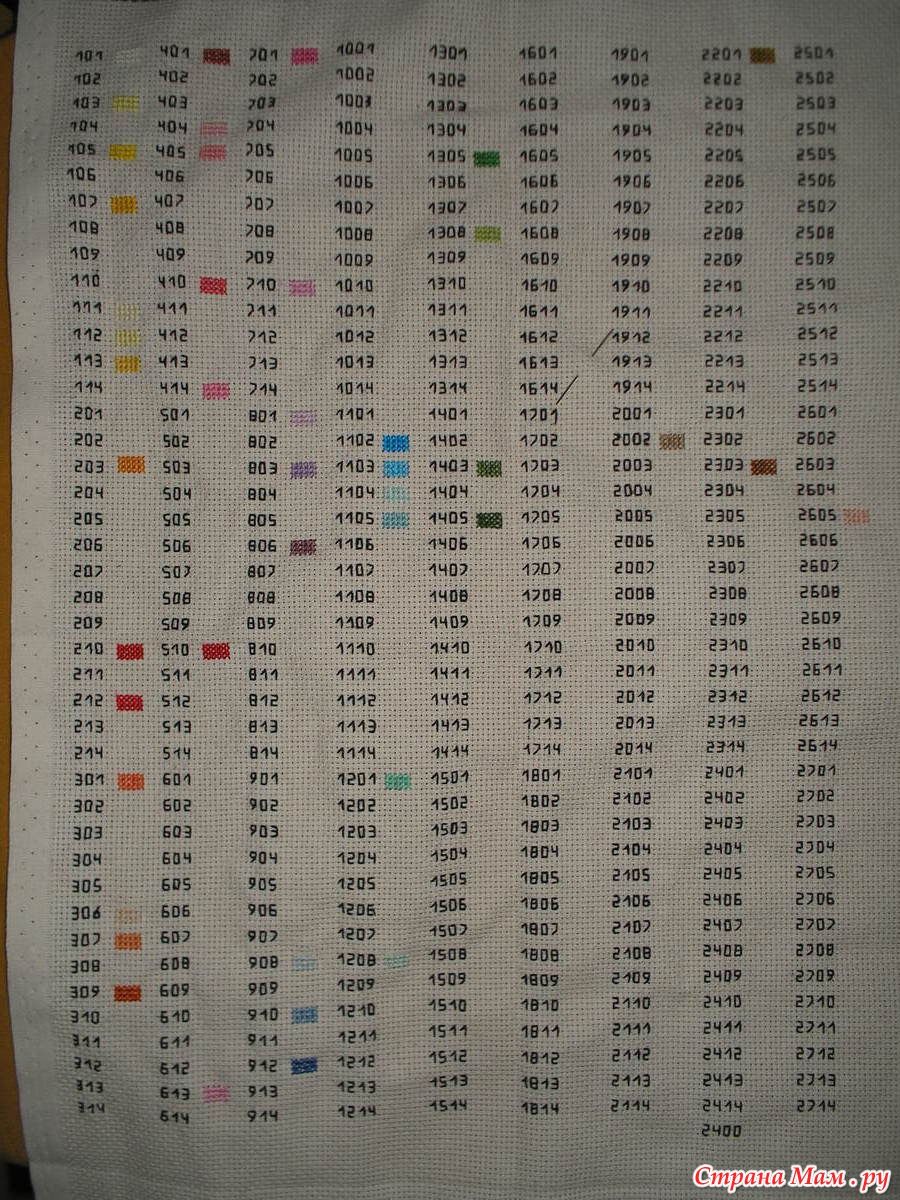 101 401 701 1001 1301 1601 1901 2201 2501
102 402 702 1002 1302 1602 1902 2202 2502
103 403 703 1003 1303 1603 1903 2203 2503
104 404 704 1004 1304 1604 1904 2204 2504
105 405 705 1005 1305 1605 1905 2205 2505
106 406 706 1006 1306 1606 1906 2206 2506
107 407 707 1007 1307 1607 1907 2207 2507
108 408 708 1008 1308 1608 1908 2208 2508
109 409 709 1009 1309 1609 1909 2209 2509
110 410 710 1010 1310 1610 1910 2210 2510
111 411 711 1011 1311 1611 1911 2211 2511
112 412 712 1012 1312 1612 1912 2212 2512
113 413 713 1013 1313 1613 1913 2213 2513
114 414 714 1014 1314 1614 1914 2214 2514
201 501 801 1101 1401 1701 2001 2301 2601
202 502 802 1102 1402 1702 2002 2302 2602
203 503 803 1103 1403 1703 2003 2303 2603
204 504 804 1104 1404 1704 2004 2304 2604
205 505 805 1105 1405 1705 2005 2305 2605
206 506 806 1106 1406 1706 2006 2306 2606
207 507 807 1107 1407 1707 2007 2307 2607
208 508 808 1108 1408 1708 2008 2308 2608
209 509 809 1109 1409 1709 2009 2309 2609
210 510 810 1110 1410 1710 2010 2310 2610
211 511 811 1111 1411 1711 2011 2311 2611
212 512 812 1112 1412 1712 2012 2312 2612
213 513 813 1113 1413 1713 2013 2313 2613
214 514 814 1114 1414 1714 2014 2314 2614
301 601 901 1201 1501 1801 2101 2401 2701
302 602 902 1202 1502 1802 2102 2402 2702
303 603 903 1203 1503 1803 2103 2403 2703
304 604 904 1204 1504 1804 2104 2404 2704
305 605 905 1205 1505 1805 2105 2405 2705
306 606 906 1206 1506 1806 2106 2406 2706
307 607 907 1207 1507 1807 2107 2407 2707
308 608 908 1208 1508 1808 2108 2408 2708
309 609 909 1209 1509 1809 2109 2409 2709
310 610 910 1210 1510 1810 2110 2410 2710
311 611 911 1211 1511 1811 2111 2411 2711
312 612 912 1212 1512 1812 2112 2412 2712
313 613 913 1213 1513 1813 2113 2413 2713
314 614 914 1214 1514 1814 2114 2414 2714
2400
Страна Мам.ру